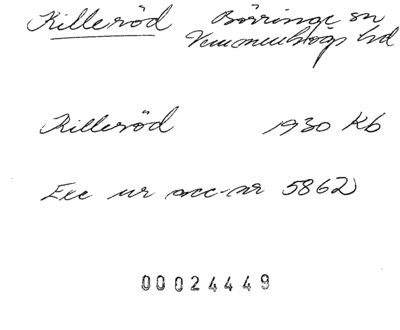 Killeröd Börringe sn
Vemmenhögs hd
Killeröd 1930 Kb
Exc ur acc-nr 5862
00024449